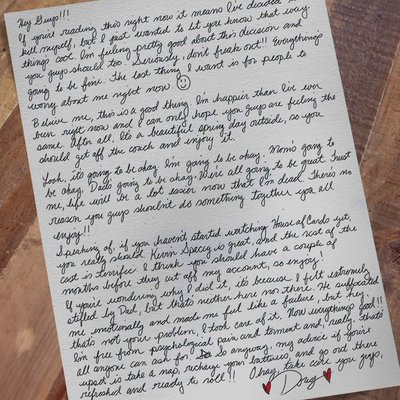 Hey Guys!!!
If you're reading this right now it means I've decided to
kill myself, but I just wanted to let you know that
things cool. I'm feeling pretty good about this decision and
you guys should too! Seriously, don't freak out!! Everything's
going to be fine. The last thing I want is for people to
worry about me right now
Believe me, this is a good thing. I'm happier than I've ever
been right now and I can only hope you guys are feeling the
same. After all, it's a beautiful spring day outside, so you
should get off the couch and enjoy it.
Look, it's going to be okay. I'm going to be okay. Mom's going to
be okay. Dad's going to be okay. We're all going to be great. Trust
me, life will be a lot easier now that I'm dead. There's no
reason you guys shouldn't do something together you all
enjoy!!
Speaking of, if you haven't started watching House of Cards yet,
you really should. Kevin Spacey is great, and the rest of the
cast is terrific. I think you should have a couple of
months before they cut off my account, so enjoy!
If you're wondering why I did it, it's because I felt extremely
stifled by Dad, but that's neither here nor there. He suffocated
me emotionally and made me feel like a failure, but hey,
that's not your problem, I took care of it. Now everything's good!!
I'm free from psychological pain and torment and, really, that's
all anyone can ask for. So anyway, my advice if you're
upset is take a nap, recharge your batteries, and go out there
refreshed and ready to roll!! Okay, take care you guys,